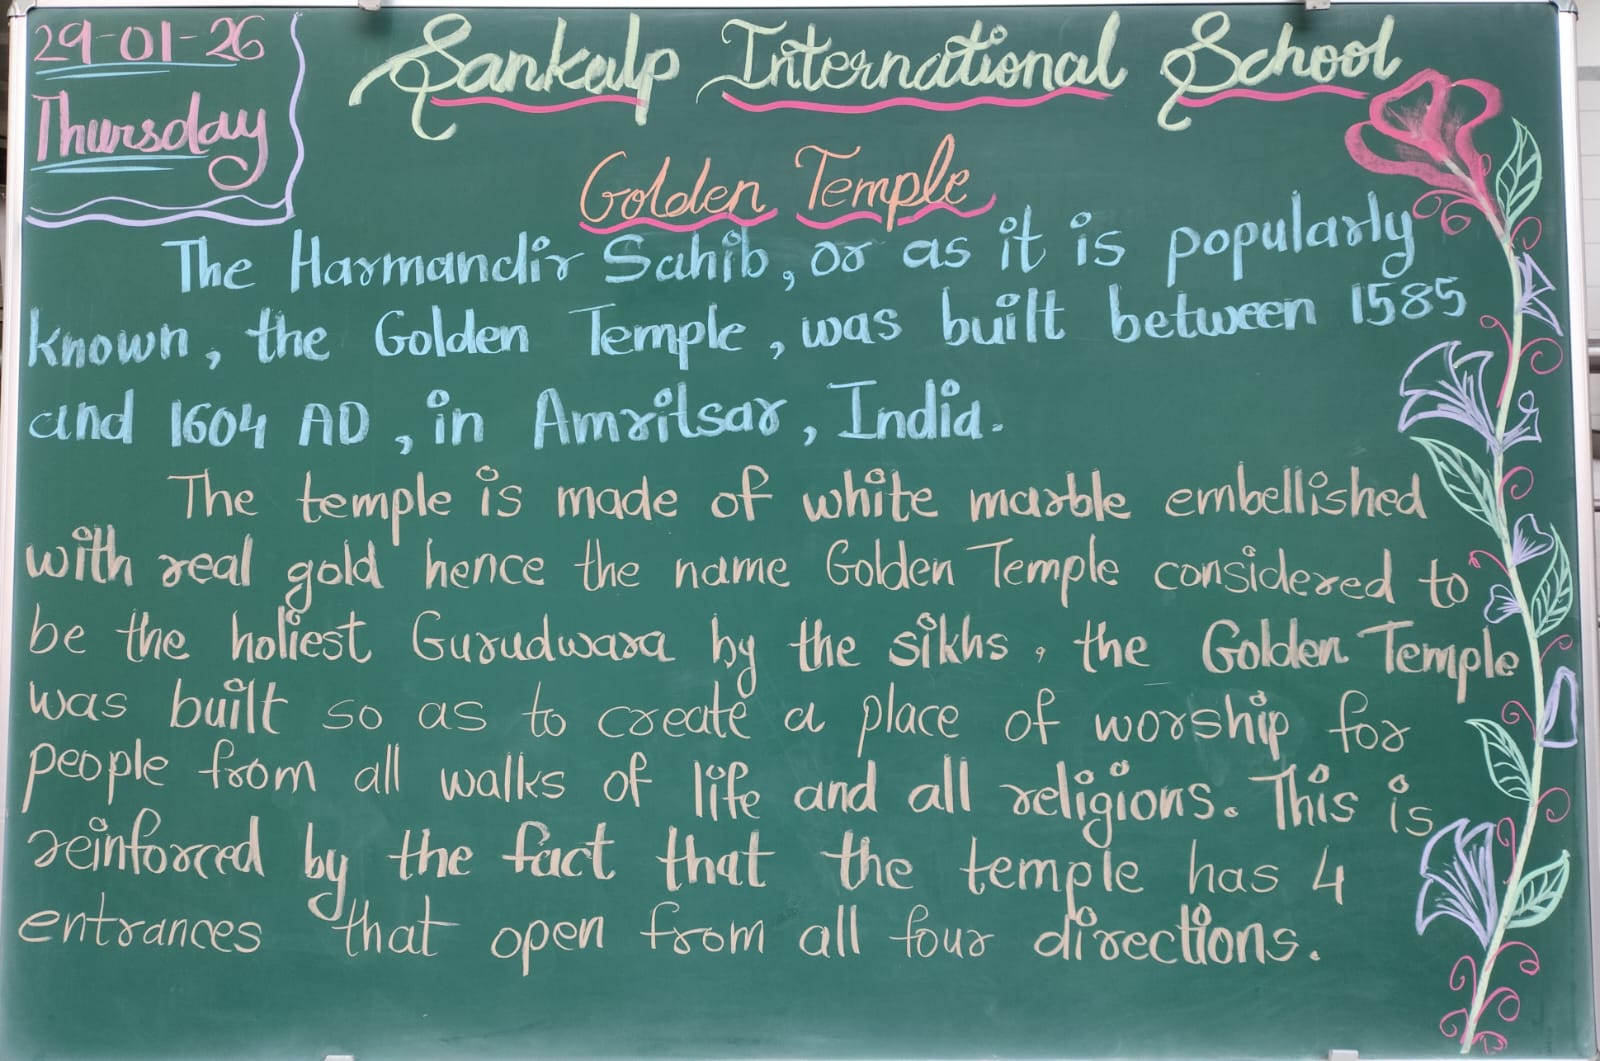 29-01-26
Thursday
Sankalp International School
Golden Temple
The Harmandir Sahib, or as it is popularly
known, the Golden Temple, was built between 1585
and 1604 AD, in Amritsar, India.
The temple is made of white marble embellished
with real gold hence the name Golden Temple considered to
be the holiest Gurudwara by the sikhs, the Golden Temple
was built so as to create a place of worship for
people from all walks of life and all religions. This is
reinforced by the fact that the temple has 4
entrances that open from all four directions.